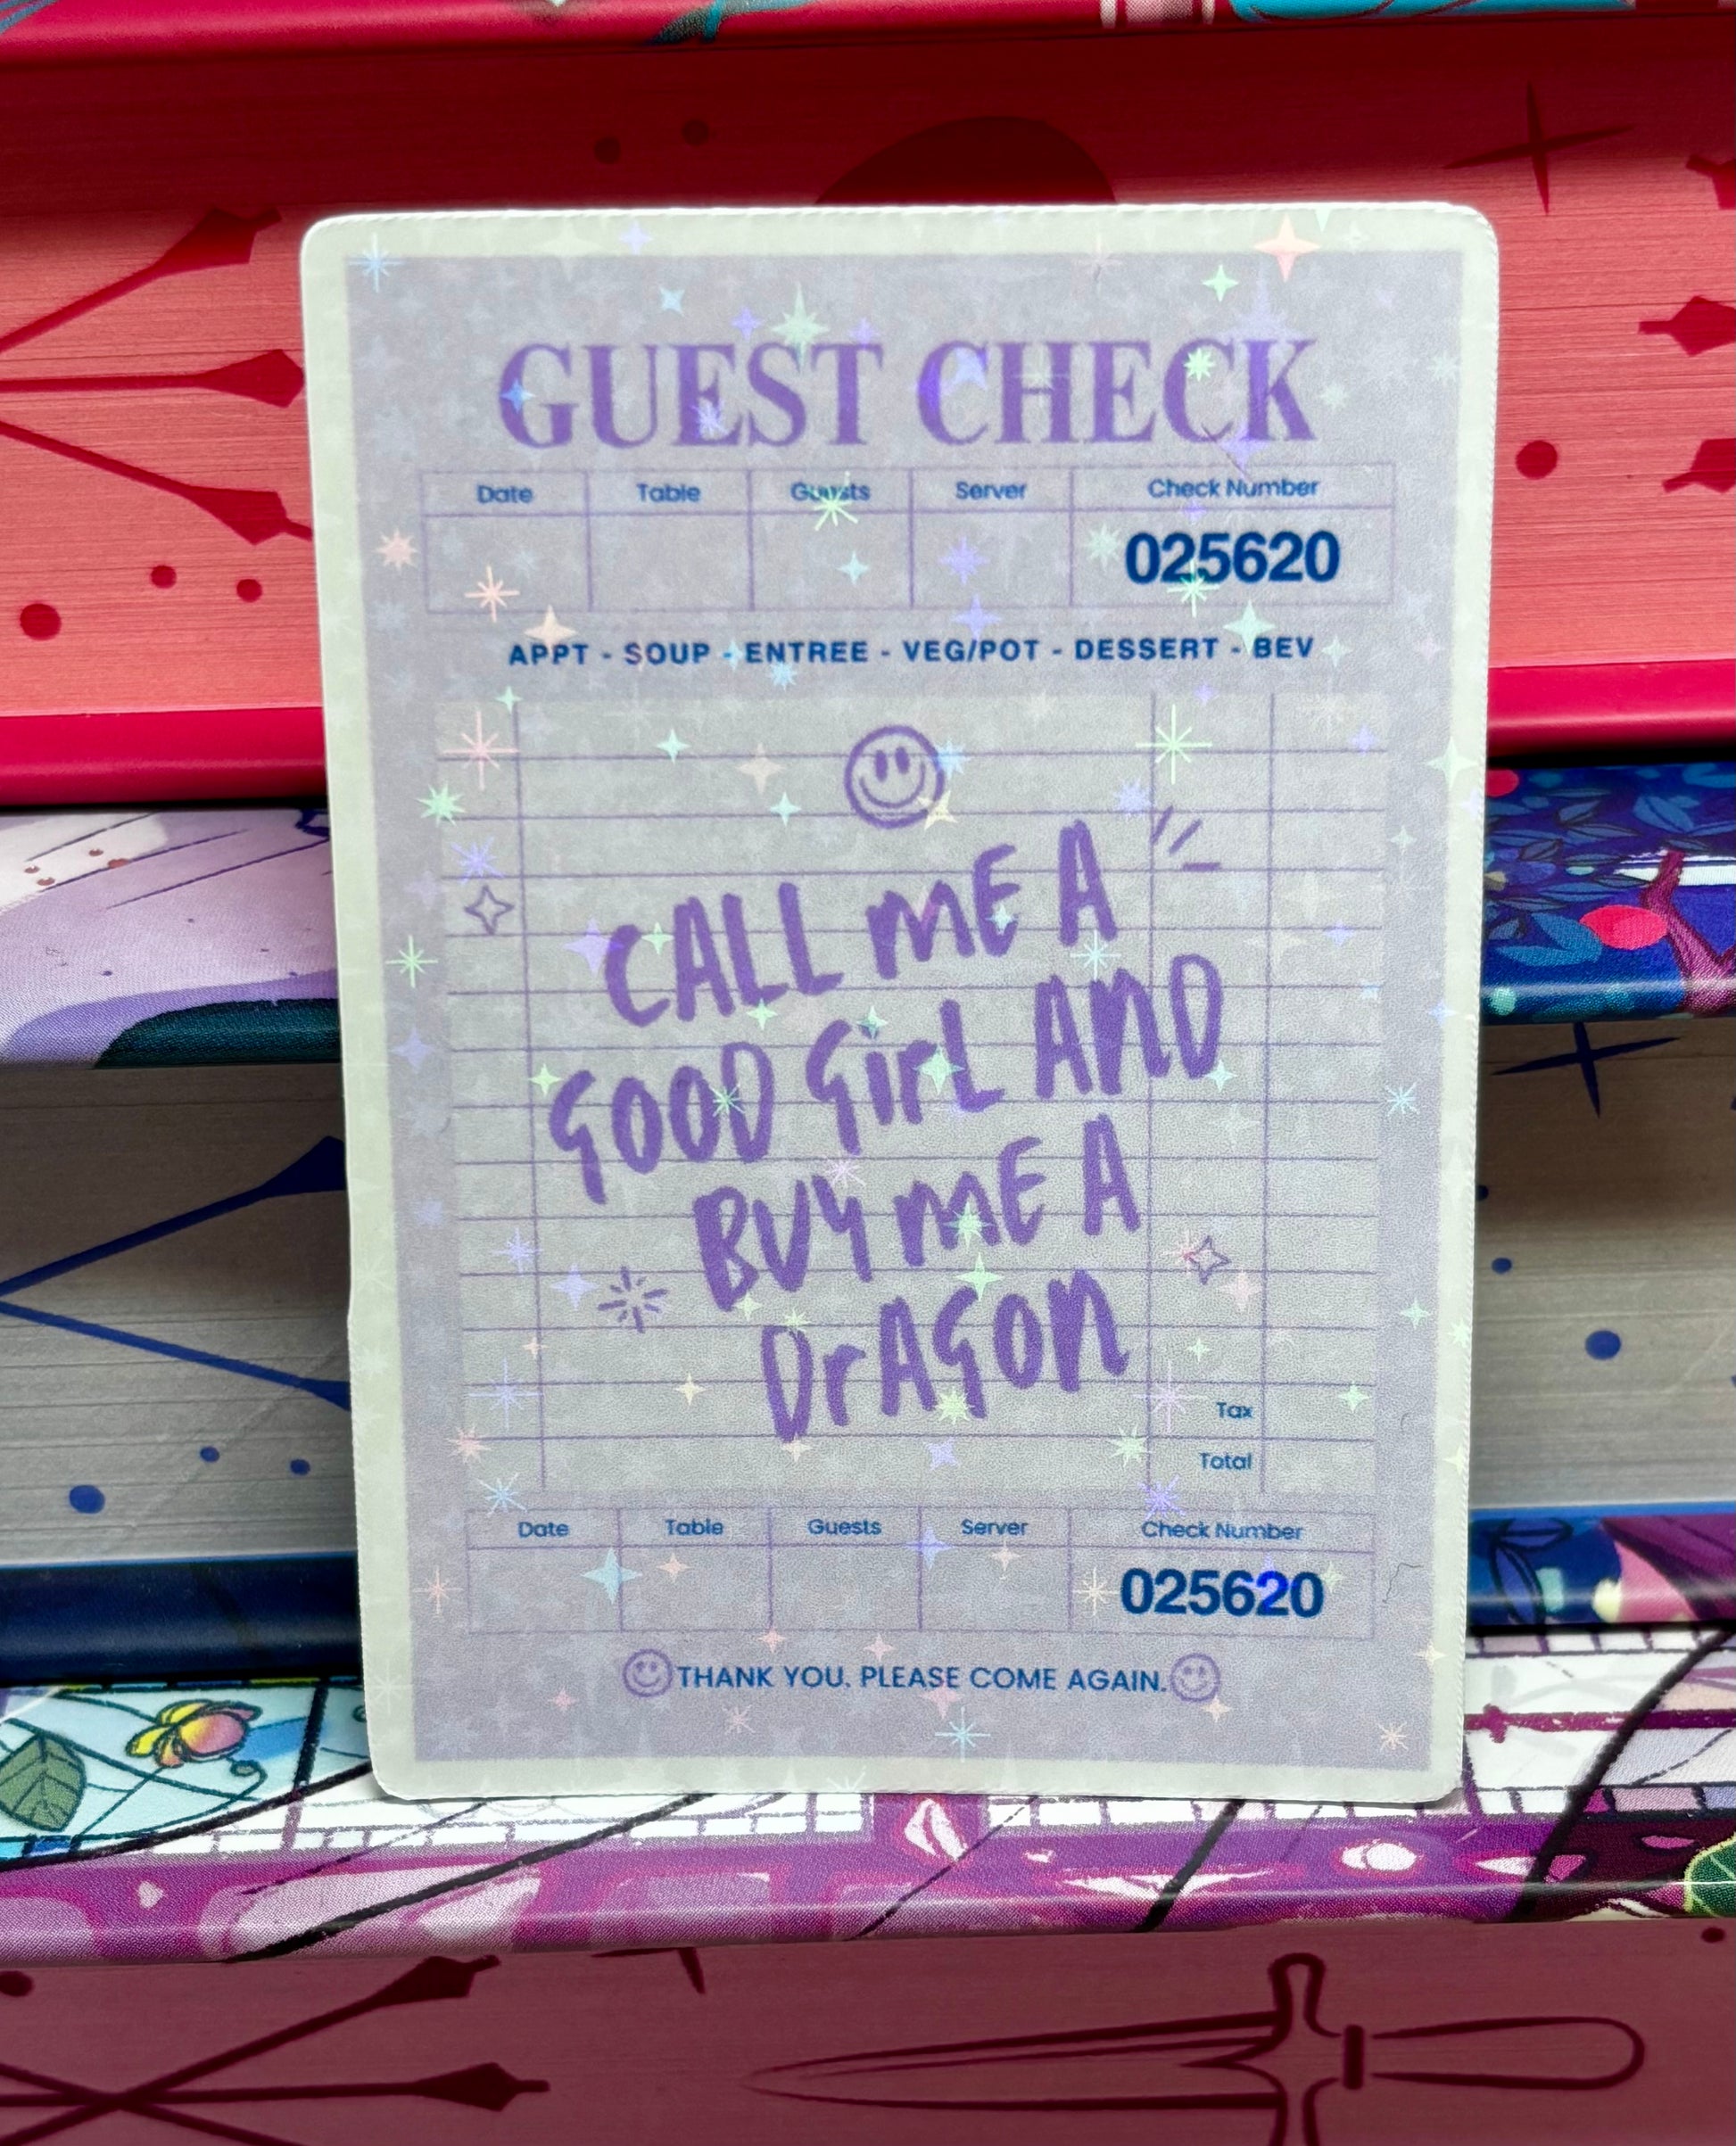 GUEST CHECK
Date Table Guests Server Check Number
025620
APPT - SOUP - ENTREE - VEG/POT - DESSERT - BEV
CALL ME A
GOOD GirL AND
BUY ME A
DrAGON
Tax
Total
Date Table Guests Server Check Number
025620
THANK YOU. PLEASE COME AGAIN.